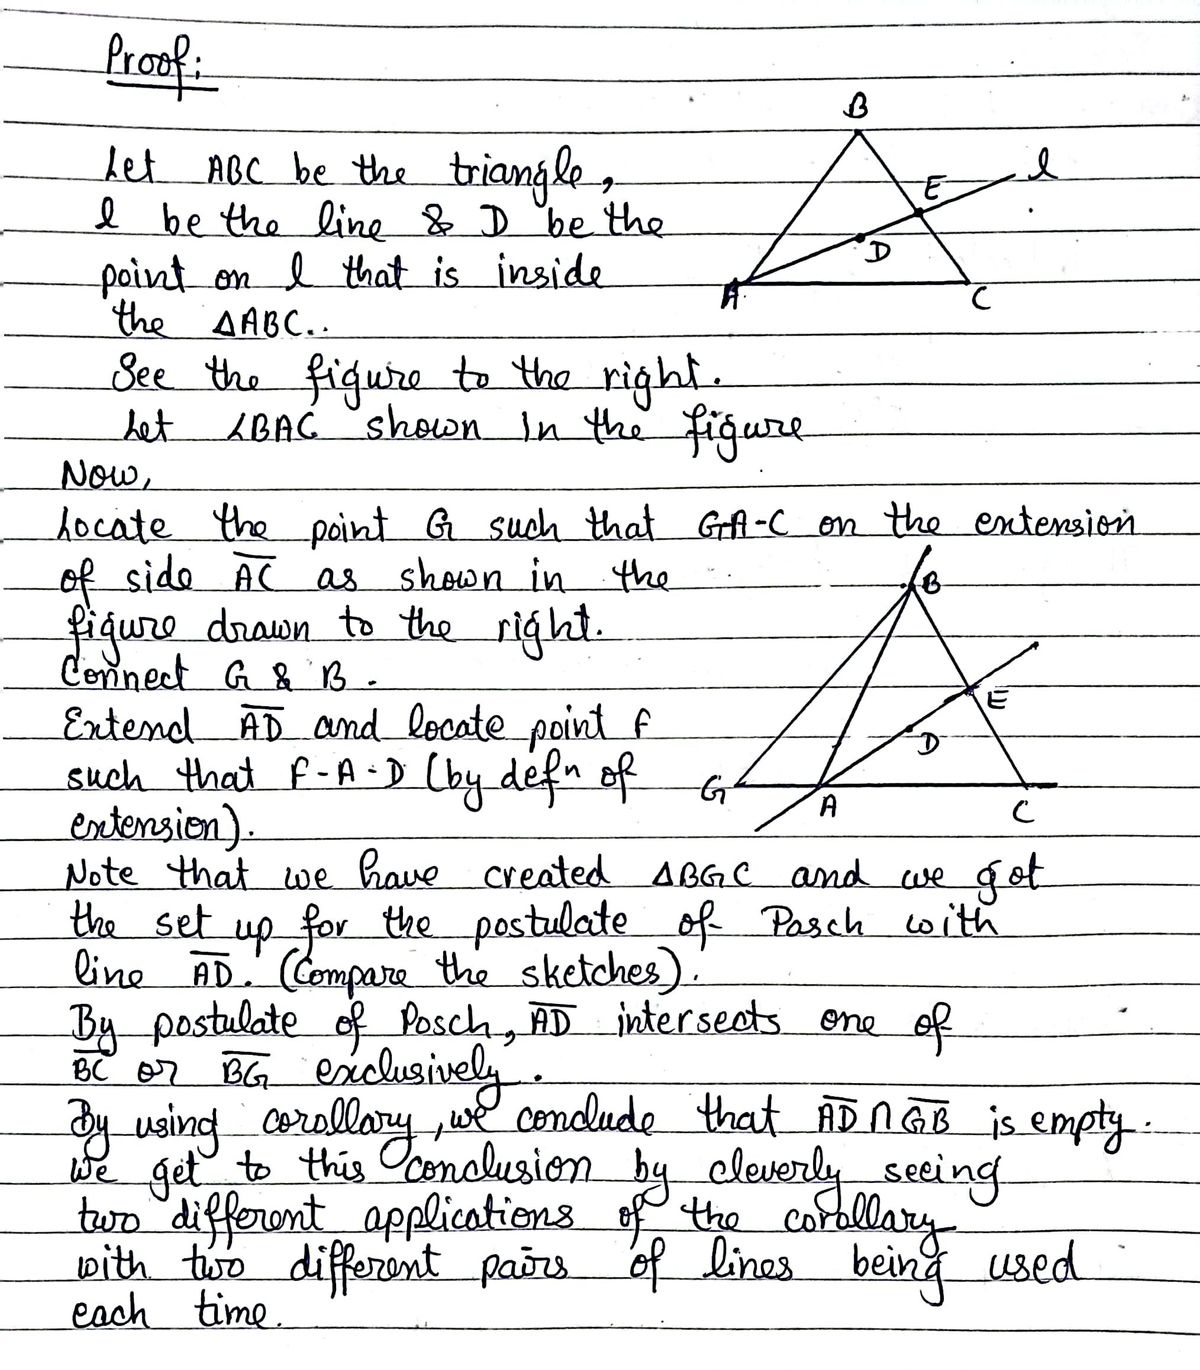 Proof:
B
Let ABC be the triangle,
l
E
l be the line & D be the
D
point on l that is inside
A
C
the △ABC..
See the figure to the right.
Let ∠BAC shown In the figure
Now,
Locate the point G such that G-A-C on the extension
of side A̅C̅ as shown in the
B
figure drawn to the right.
Connect G & B.
E
Extend A̅D̅ and locate point F
D
such that F-A-D (by defn of
G
A
C
extension).
Note that we have created △BGC and we got
the set up for the postulate of Pasch with
line A̅D̅. (Compare the sketches).
By postulate of Posch, A̅D̅ intersects one of
B̅C̅ or B̅G̅ exclusively.
By using corollary, we conclude that A̅D̅ ∩ G̅B̅ is empty.
We get to this conclusion by cleverly seeing
two different applications of the corollary
with two different pairs of lines being used
each time.